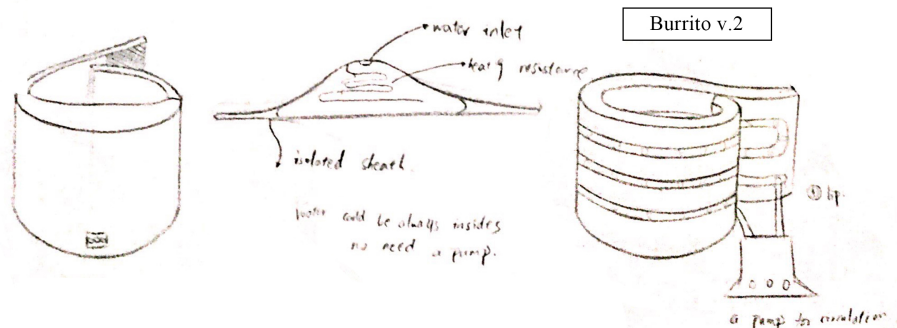 Burrito v.2
water inlet
heat g resistance
isolated sheath.
Water could be always insides
no need a pump.
a pump for circulation